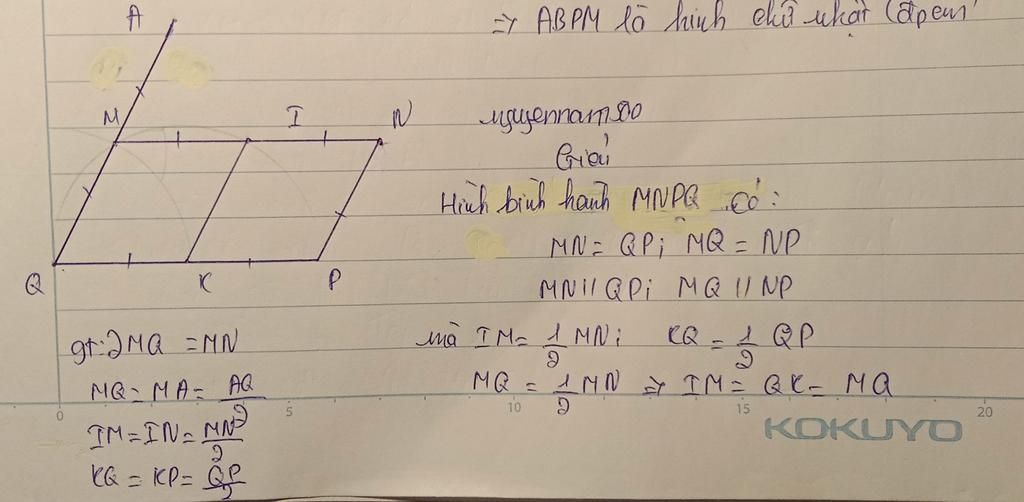 ⇒ ABPM là hình chữ nhật (đpcm)
A
M I N
Q K P
nguyennam80
Giải
Hình bình hành MNPQ có:
MN = QP; MQ = NP
MN // QP; MQ // NP
mà IM = 1/2 MN; KQ = 1/2 QP
MQ = 1/2 MN ⇒ IM = QK = MQ
gt: 2MQ = MN
MQ = MA = AQ/2
IM = IN = MN/2
KQ = KP = QP/2
0 5 10 15 20
KOKUYO